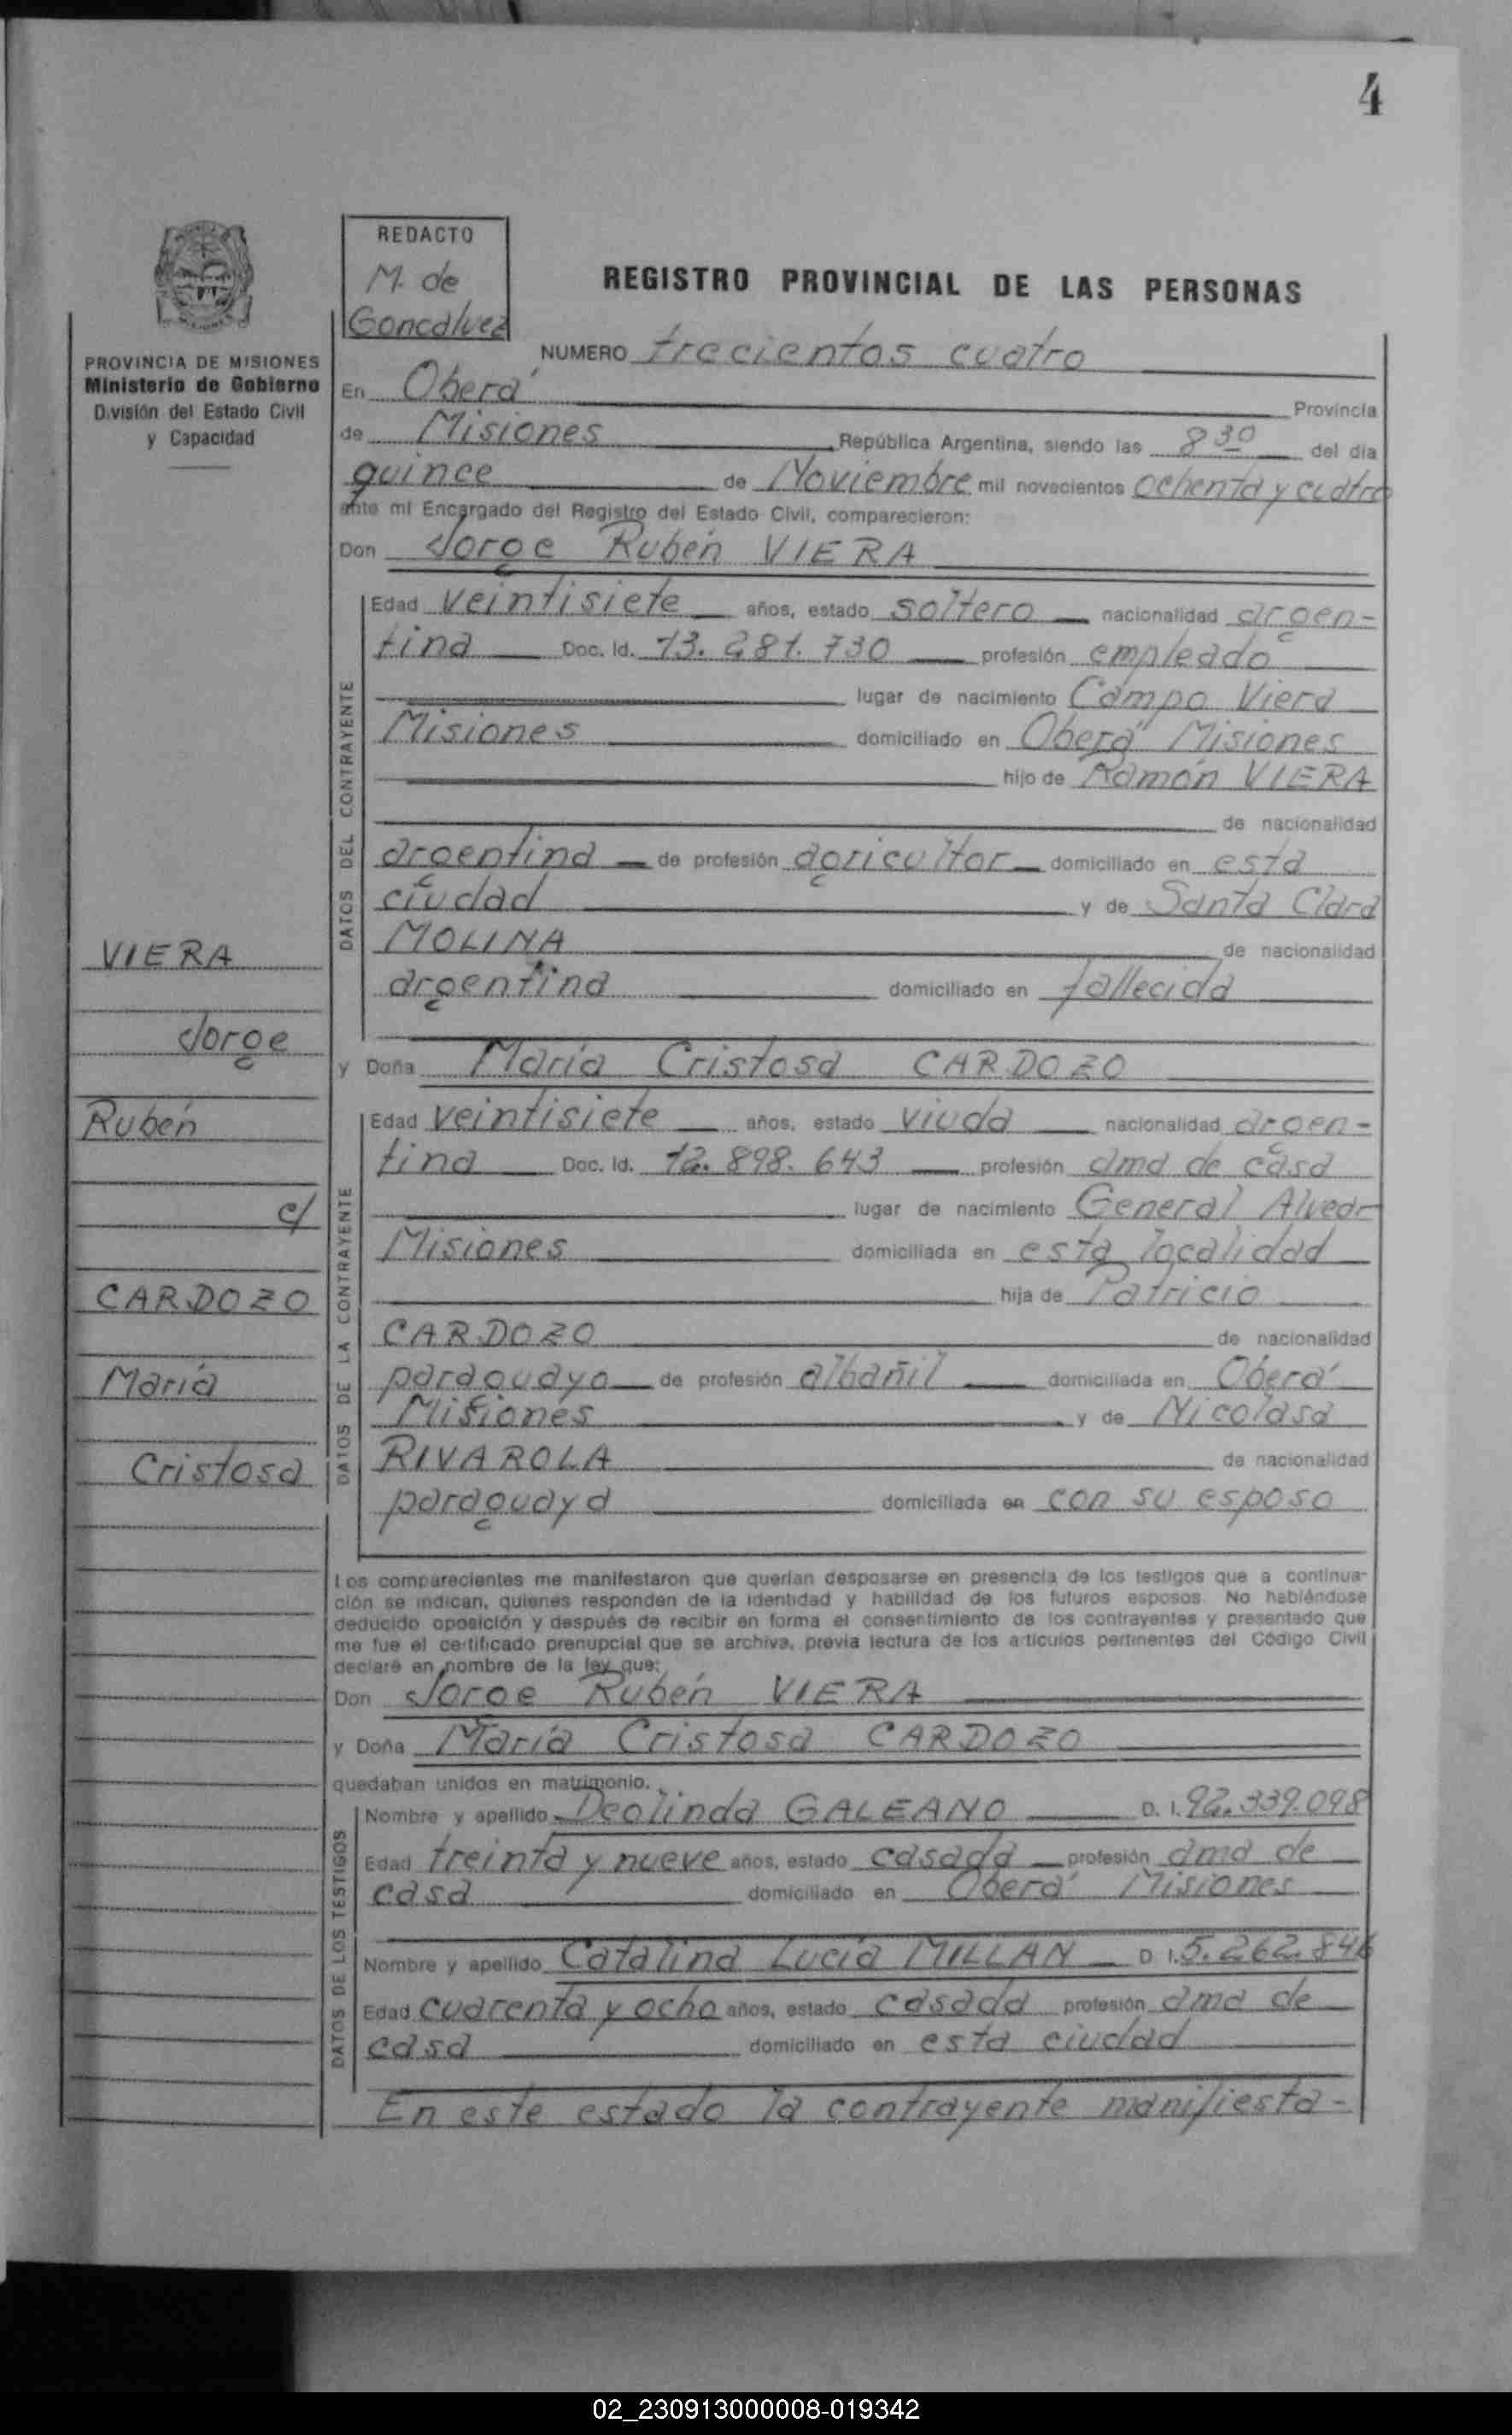 4
REDACTO
M. de
Goncalvez
REGISTRO PROVINCIAL DE LAS PERSONAS
PROVINCIA DE MISIONES
Ministerio de Gobierno
División del Estado Civil
y Capacidad
NUMERO trecientos cuatro
En Oberá Provincia
de Misiones República Argentina, siendo las 8 30 del día
quince de Noviembre mil novecientos ochenta y cuatro
ante mi Encargado del Registro del Estado Civil, comparecieron:
Don Jorge Rubén VIERA
DATOS DEL CONTRAYENTE
Edad veintisiete años, estado soltero nacionalidad argen-
tina Doc. Id. 13.281.730 profesión empleado
lugar de nacimiento Campo Viera
Misiones domiciliado en Oberá Misiones
hijo de Ramón VIERA
de nacionalidad
argentina de profesión agricultor domiciliado en esta
ciudad y de Santa Clara
MOLINA de nacionalidad
argentina domiciliado en fallecida
y Doña María Cristosa CARDOZO
DATOS DE LA CONTRAYENTE
Edad veintisiete años, estado viuda nacionalidad argen-
tina Doc. Id. 12.898.643 profesión ama de casa
lugar de nacimiento General Alvear
Misiones domiciliada en esta localidad
hija de Patricio
CARDOZO de nacionalidad
paraguayo de profesión albañil domiciliada en Oberá
Misiones y de Nicolasa
RIVAROLA de nacionalidad
paraguaya domiciliada en con su esposo
VIERA
Jorge
Rubén
c/
CARDOZO
María
Cristosa
Los comparecientes me manifestaron que querían desposarse en presencia de los testigos que a continua-
ción se indican, quienes responden de la identidad y habilidad de los futuros esposos. No habiéndose
deducido oposición y después de recibir en forma el consentimiento de los contrayentes y presentado que
me fue el certificado prenupcial que se archiva, previa lectura de los artículos pertinentes del Código Civil
declaré en nombre de la ley que:
Don Jorge Rubén VIERA
y Doña María Cristosa CARDOZO
quedaban unidos en matrimonio.
DATOS DE LOS TESTIGOS
Nombre y apellido Deolinda GALEANO D. I. 92.339.098
Edad treinta y nueve años, estado casada profesión ama de
casa domiciliado en Oberá Misiones
Nombre y apellido Catalina Lucía MILLAN D I. 5.262.846
Edad cuarenta y ocho años, estado casada profesión ama de
casa domiciliado en esta ciudad
En este estado la contrayente manifiesta-
02_230913000008-019342